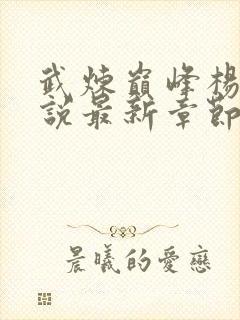 武煉巔峰楊
說最新章節
晨曦的愛戀